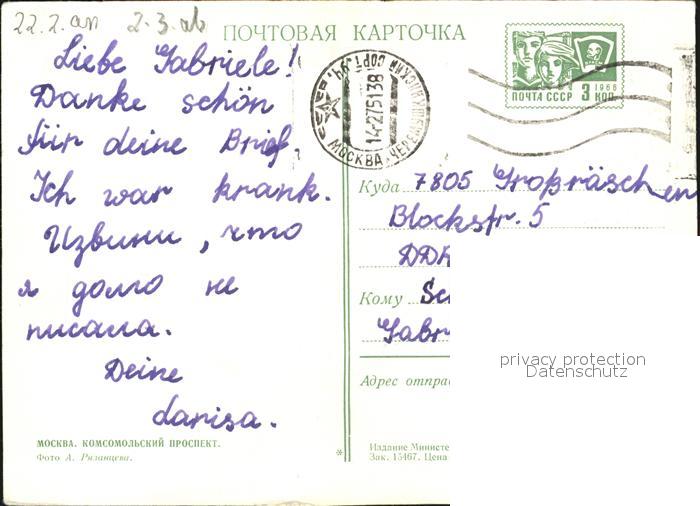 22.2. an 2.3. ab
ПОЧТОВАЯ КАРТОЧКА
Liebe Gabriele!
Danke schön
für deine Brief.
Ich war krank.
Извини, что
я долго не
писала.
Deine
Larisa.
МОСКВА. КОМСОМОЛЬСКИЙ ПРОСПЕКТ.
Фото А. Рязанцева.
МОСКВА
ПОЧТА СССР 3 КОП.
1966
Куда 7805 Großräschen
Blockstr. 5
DDR
Кому Sc
Gabr
Адрес отправ
Издание Министе
Зак. 15467. Цена
privacy protection
Datenschutz